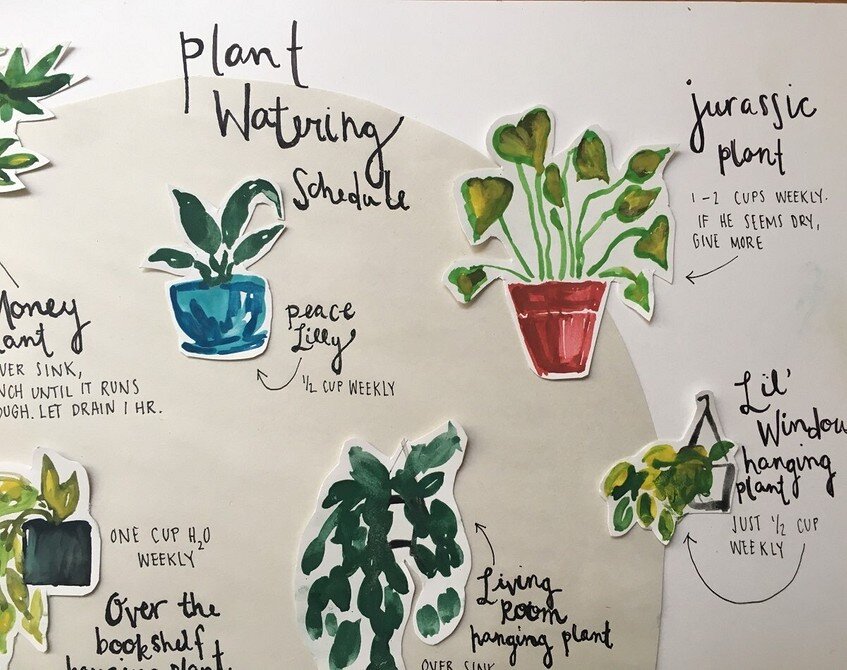 plant
Watering
Schedule
jurassic
plant
1-2 CUPS WEEKLY.
IF HE SEEMS DRY,
GIVE MORE
peace
Lilly
1/2 CUP WEEKLY
Money
lant
VER SINK,
NCH UNTIL IT RUNS
OUGH. LET DRAIN 1 HR.
Lil'
Window
hanging
plant
JUST 1/2 CUP
WEEKLY
ONE CUP H2O
WEEKLY
Over the
bookshelf
hanging plant
Living
Room
hanging plant
OVER SINK